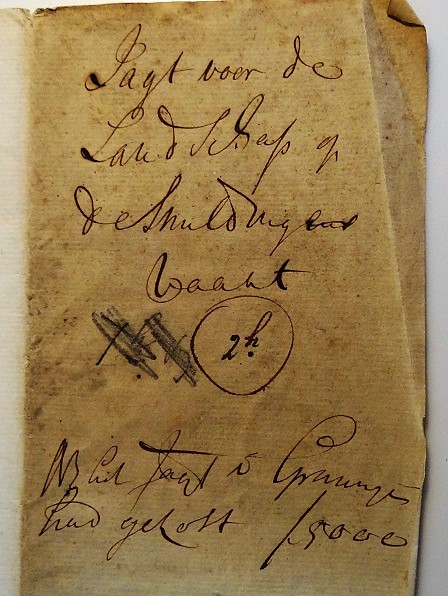 Jagt voor de
Landschap op
de Smildinger
vaart
2h
NB het Jagt v Groningen
had gekost f 5000